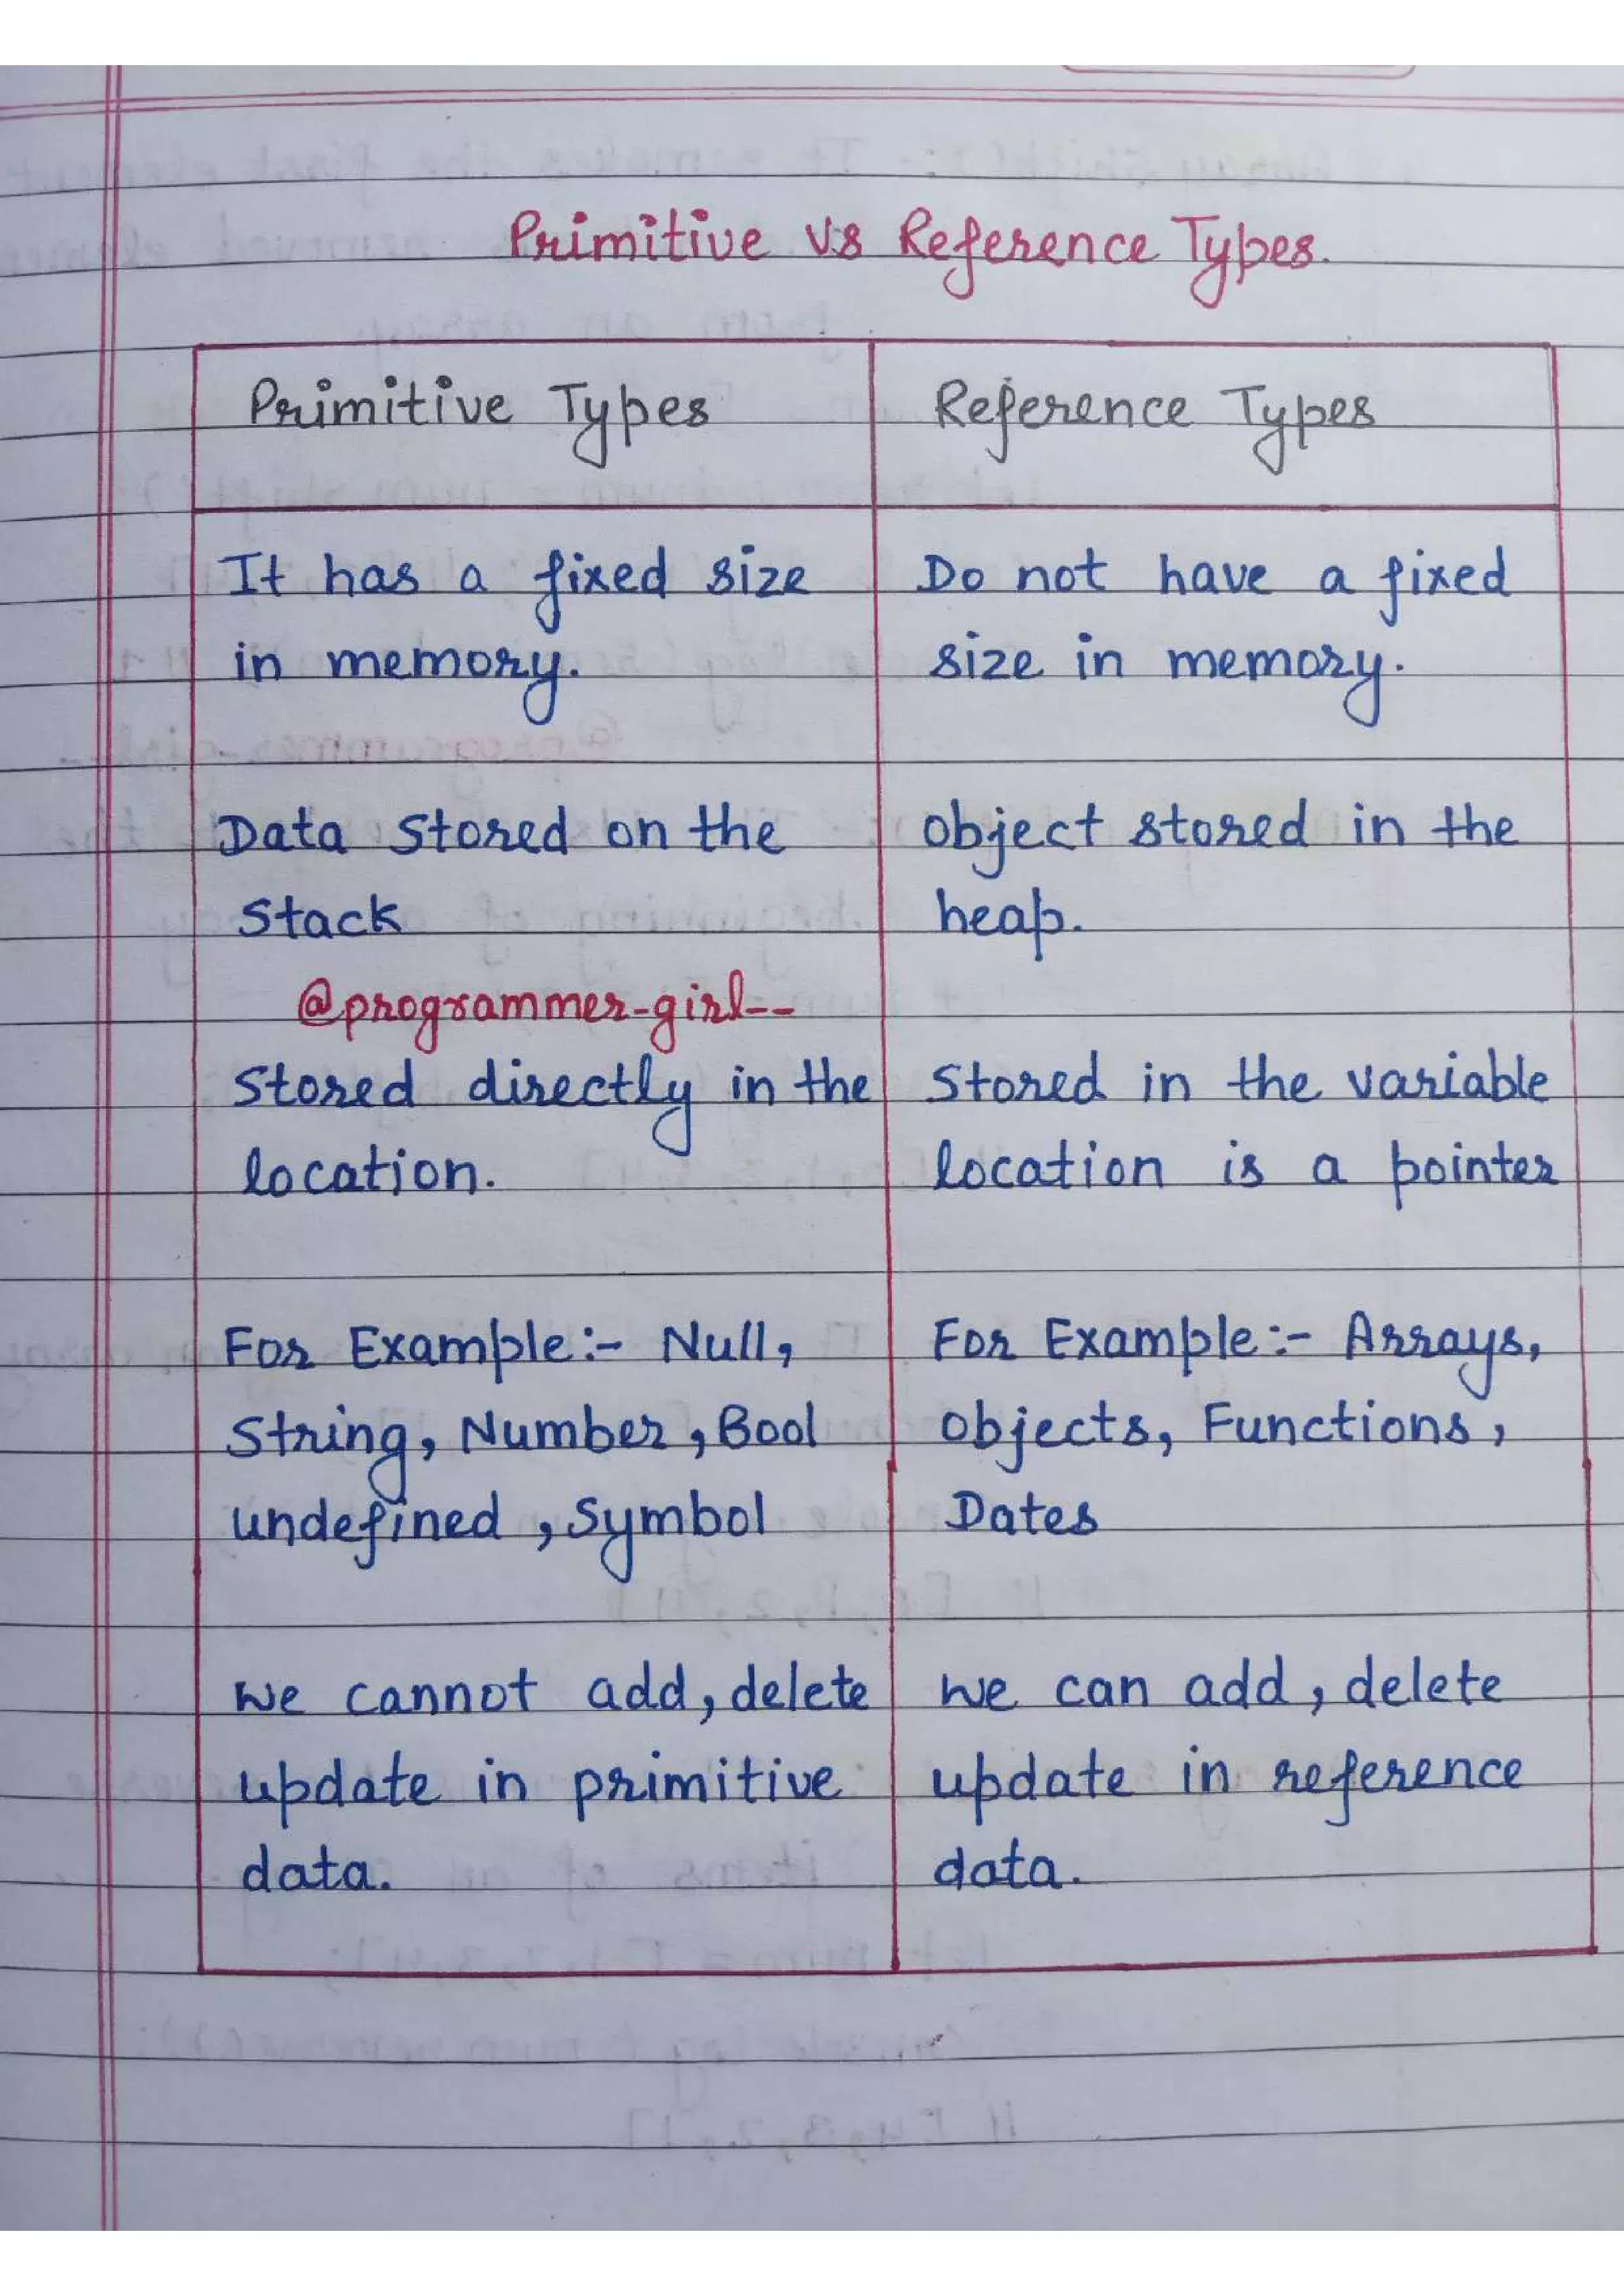 Primitive Vs Reference Types.
Primitive Types
Reference Types
It has a fixed size
in memory.
Do not have a fixed
size in memory.
Data stored on the
Stack
Object stored in the
heap.
@programmer-girl--
Stored directly in the
location.
Stored in the variable
location is a pointer
For Example:- Null,
String, Number, Bool
undefined, Symbol
For Example:- Arrays,
Objects, Functions,
Dates
We cannot add, delete
update in primitive
data.
We can add, delete
update in reference
data.